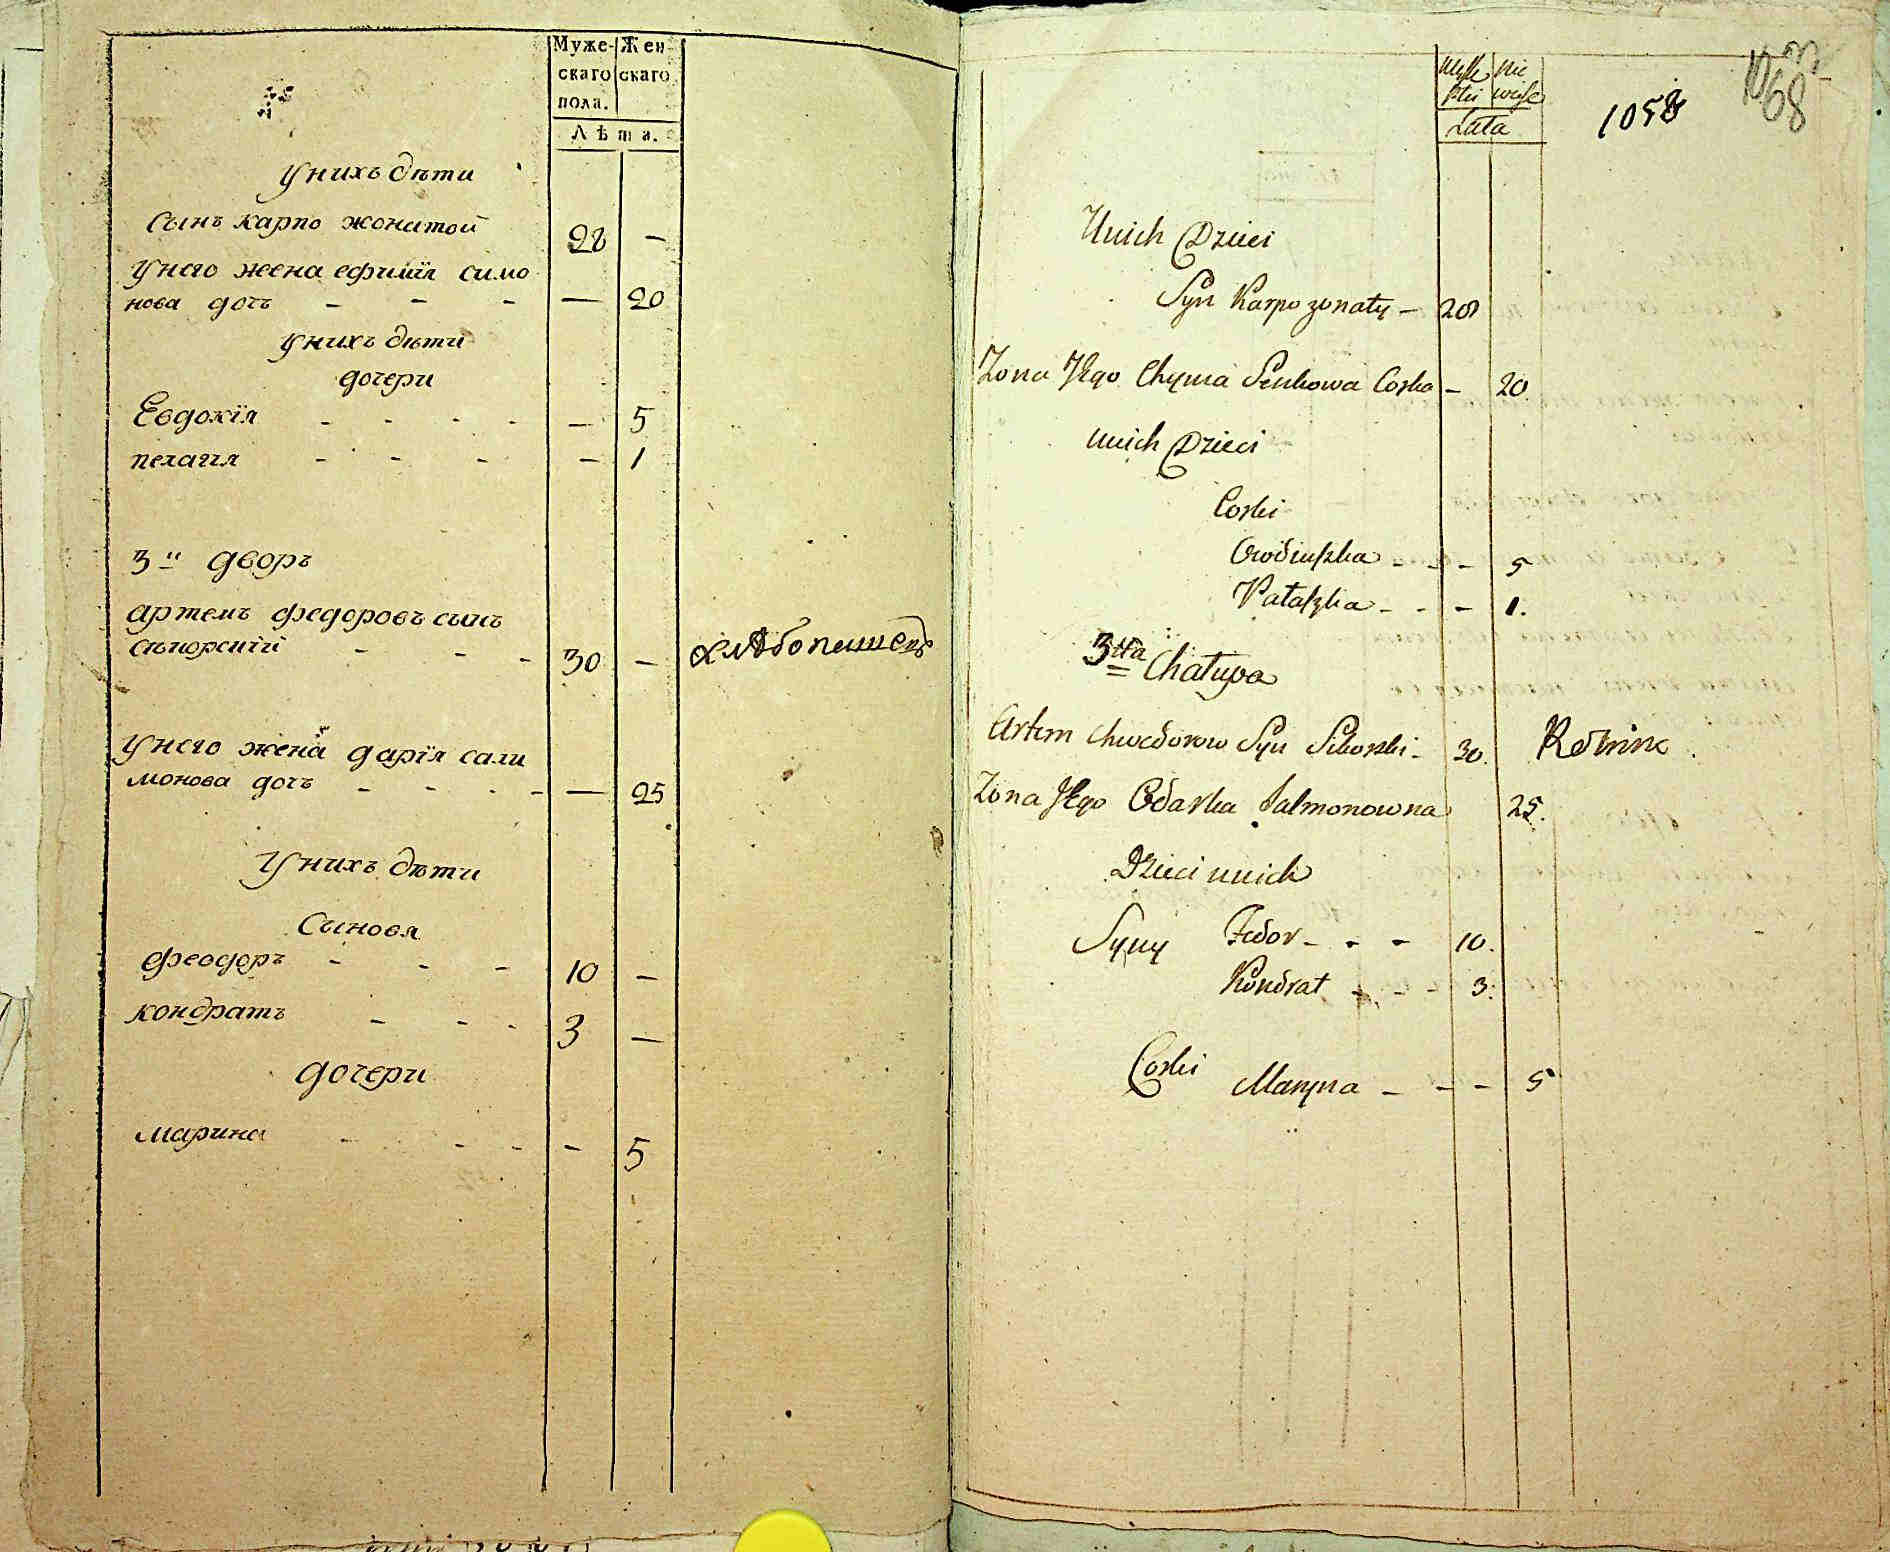 Муже- Жен
скаго скаго
пола.
Лѣта.
у нихъ дѣти
сынъ карпо жонатой 28 —
у него жена ефимїя симо
нова дочь - - - — 20
у нихъ дѣти
дочери
Евдокїя - - - - — 5
пелагїя - - - - 1
3й дворъ
артемъ федоровъ сынъ
- - - 30 — хлѣбопашецъ
у него жена дарїя сали
монова дочь - - - - — 25
у нихъ дѣти
Сыновя
феодоръ - - - 10 —
кондратъ - - - 3 —
дочери
марина - - - - 5
Męſk Nie
ſkii wieſc
Lata
1058
1068
Unich Dzieci
Syn Karpo zonaty - 28
Zona Jego Chyma Senkowa Corka - 20.
unich Dzieci
Corki
Owdiuſzka - - - 5
Pałaſzka - - - 1.
3cia Chałupa
Artem Chwedorow Syn Sikorski - 30. Rolnik
Zona Jego Odarka Salmonowna 25.
Dzieci unich
Syny Fedor - - - 10.
Kondrat - - - 3.
Corki Maryna - - - 5